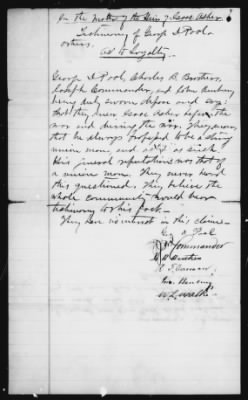 In the Matter of the Heirs of Isaac Asher
Testimony of George D Pool &
others.
as to Loyalty
George D Pool, Charles R. Brothers,
Joseph Commander, and John
being duly sworn depose and say:
that they knew Isaac Asher before the
war and during the war. They know
that he always professed to be a strong
union man, and acted as such.
His general reputation was that of
a union man. They never heard
this questioned. They believe the
whole community would bear
testimony to this fact.
They have no interest in this claim.
Geo D Pool
Commander
Brothers